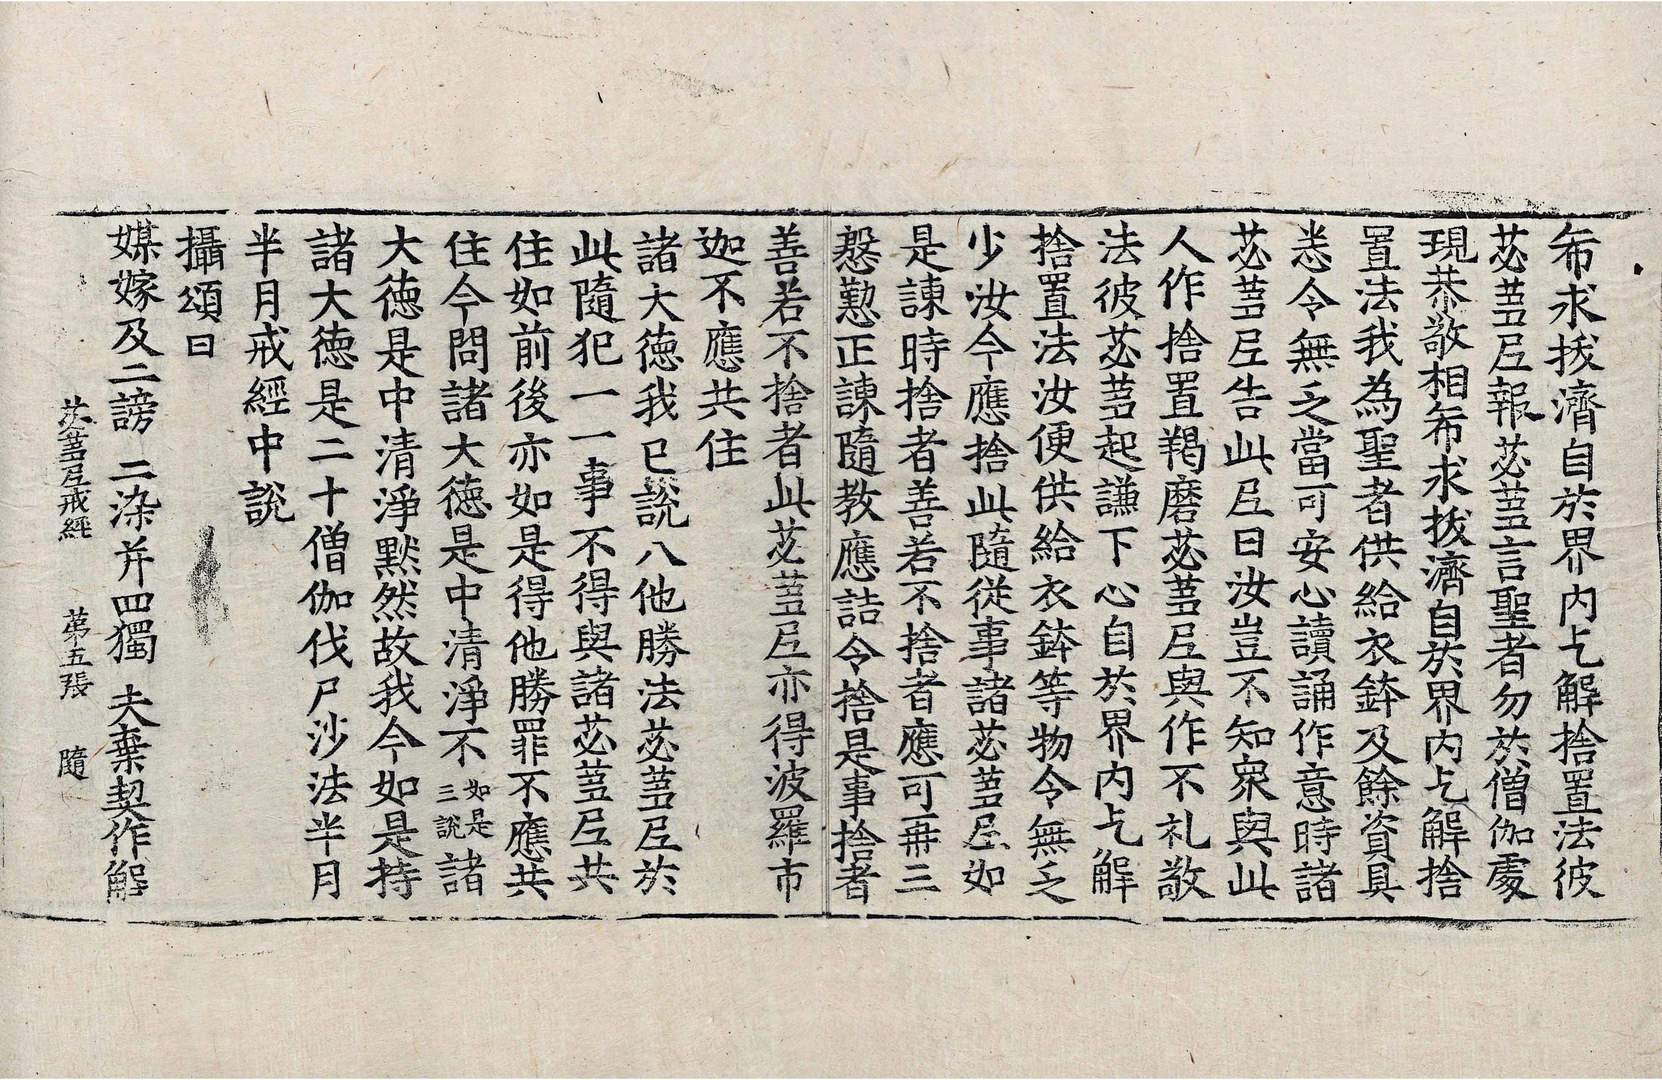 希求拔濟自於界内乞解捨置法彼
苾蒭尼報苾蒭言聖者勿於僧伽處
現恭敬相希求拔濟自於界内乞解捨
置法我為聖者供給衣鉢及餘資具
悉令無乏當可安心讀誦作意時諸
苾蒭尼告此尼曰汝豈不知衆與此
人作捨置羯磨苾蒭尼與作不礼敬
法彼苾蒭起謙下心自於界内乞解
捨置法汝便供給衣鉢等物令無乏
少汝今應捨此隨從事諸苾蒭尼如
是諫時捨者善若不捨者應可再三
慇懃正諫隨教應詰令捨是事捨者
善若不捨者此苾蒭尼亦得波羅市
迦不應共住
諸大德我已說八他勝法苾蒭尼於
此隨犯一一事不得與諸苾蒭尼共
住如前後亦如是得他勝罪不應共
住今問諸大德是中清淨不如是三說諸
大德是中清淨默然故我今如是持
諸大德是二十僧伽伐尸沙法半月
半月戒經中說
攝頌曰
媒嫁及二謗 二染并四獨 夫棄契作解
苾蒭尼戒經 第五張 隨